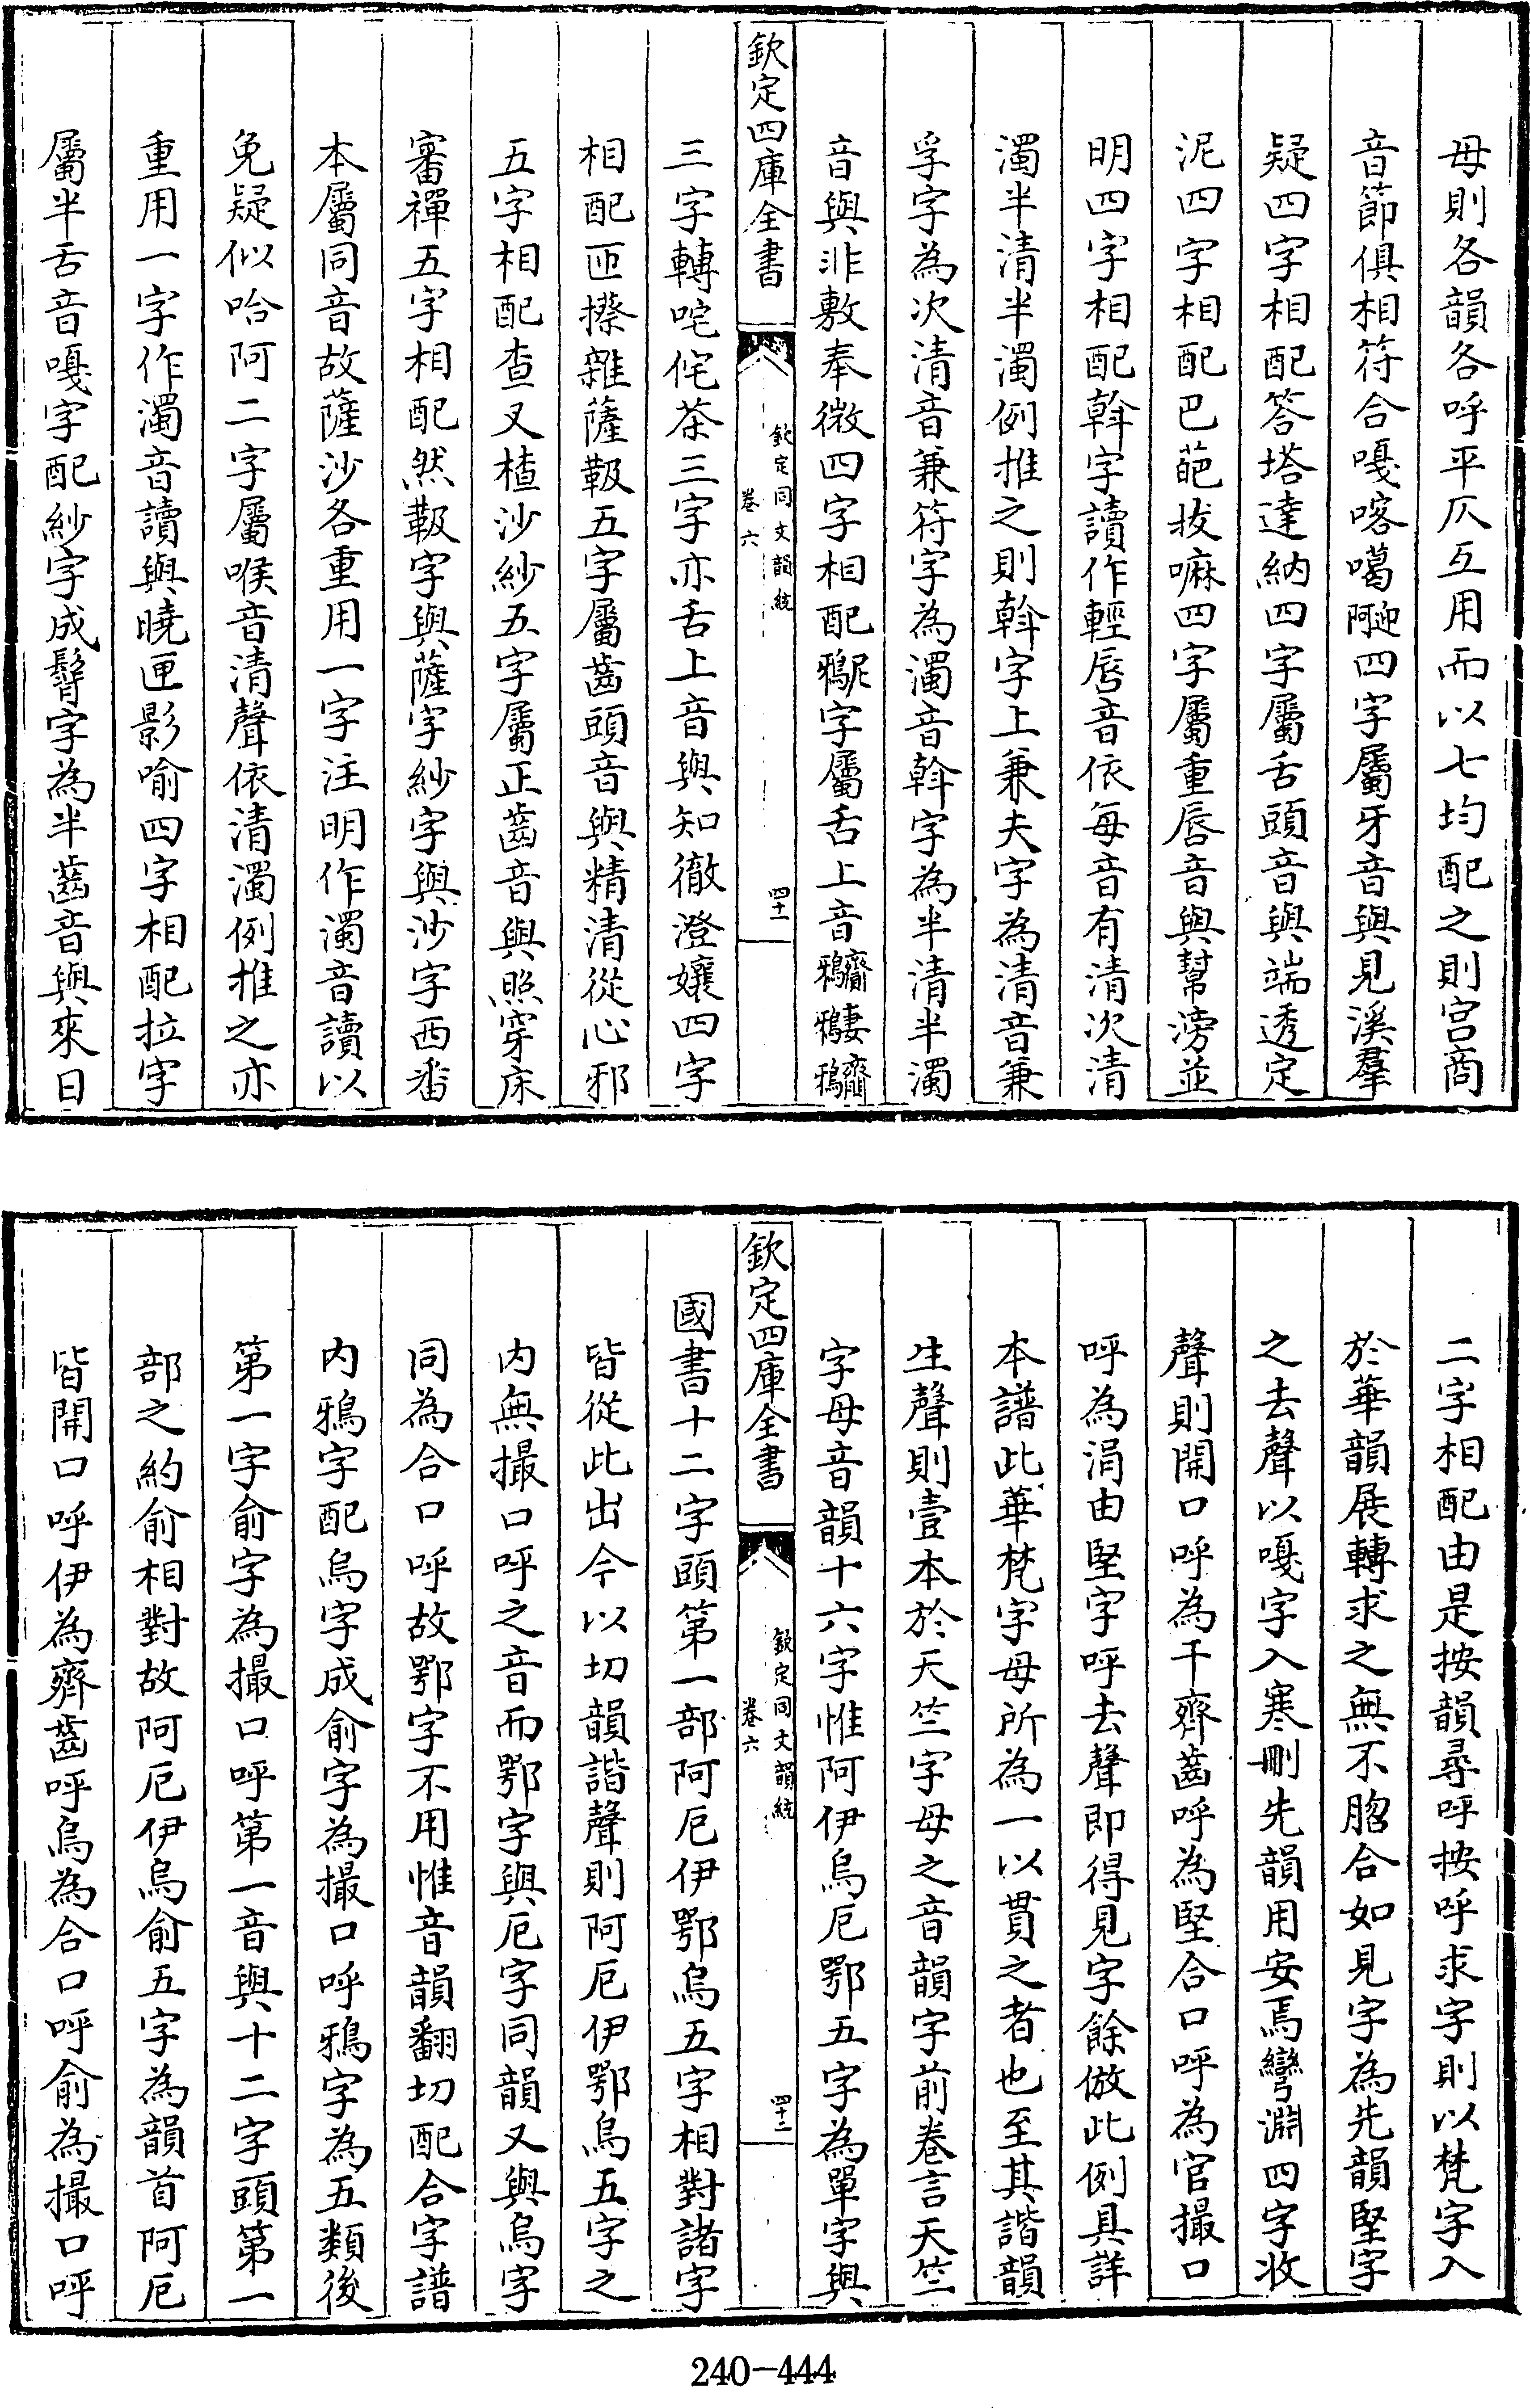 母則各韻各呼平仄互用而以七均配之則宫商
音節俱相符合嘎喀噶迎阿四字屬牙音與見溪羣
疑四字相配答塔達納四字屬舌頭音與端透定
泥四字相配巴葩拔嘛四字屬重唇音與幫滂並
明四字相配斡字讀作輕唇音依每音有清次清
濁半清半濁例推之則斡字上兼夫字為清音兼
孚字為次清音兼符字為濁音斡字為半清半濁
音與非敷奉微四字相配尼鴉字屬舌上音齎鴉妻鴉齎鴉
欽定四庫全書
欽定同文韻統
卷六
四十一
三字轉咤侘茶三字亦舌上音與知徹澄孃四字
相配匝攃雜薩䩐五字屬齒頭音與精清從心邪
五字相配查叉楂沙紗五字屬正齒音與照穿床
審禪五字相配然䩐字與薩字紗字與沙字西番
本屬同音故薩沙各重用一字注明作濁音讀以
免疑似哈阿二字屬喉音清聲依清濁例推之亦
重用一字作濁音讀與曉匣影喻四字相配拉字
屬半舌音嘎字配紗字成髾字為半齒音與來日
二字相配由是按韻尋呼按呼求字則以梵字入
於華韻展轉求之無不脗合如見字為先韻堅字
之去聲以嘎字入寒刪先韻用安焉彎淵四字收
聲則開口呼為干齊齒呼為堅合口呼為官撮口
呼為涓由堅字呼去聲即得見字餘倣此例具詳
本譜此華梵字母所為一以貫之者也至其諧韻
生聲則壹本於天竺字母之音韻字前卷言天竺
字母音韻十六字惟阿伊烏厄鄂五字為單字與
欽定四庫全書
欽定同文韻統
卷六
四十二
國書十二字頭第一部阿厄伊鄂烏五字相對諸字
皆從此出今以切韻諧聲則阿厄伊鄂烏五字之
内無撮口呼之音而鄂字與厄字同韻又與烏字
同為合口呼故鄂字不用惟音韻翻切配合字譜
内鴉字配烏字成俞字為撮口呼鴉字為五類後
第一字俞字為撮口呼第一音與十二字頭第一
部之約俞相對故阿厄伊烏俞五字為韻首阿厄
皆開口呼伊為齊齒呼烏為合口呼俞為撮口呼
240-444